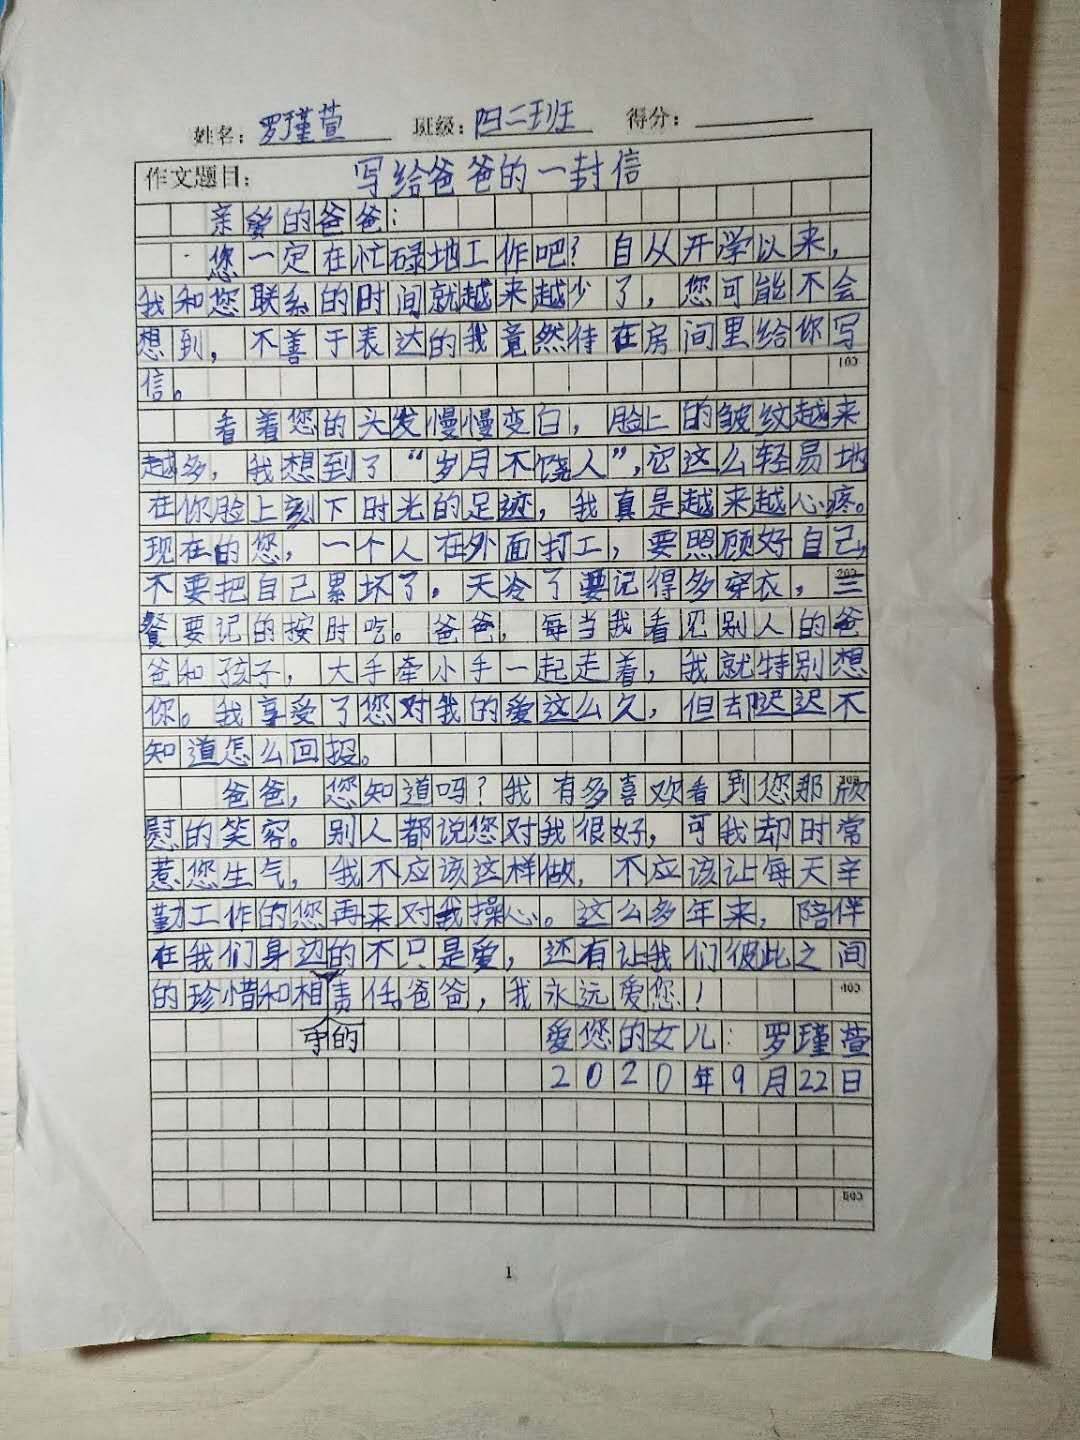 姓名：罗瑾萱 班级：四二班 得分：
作文题目： 写给爸爸的一封信
亲爱的爸爸：
您一定在忙碌地工作吧？自从开学以来，
我和您联系的时间就越来越少了，您可能不会
想到，不善于表达的我竟然待在房间里给你写
100
信。
看着您的头发慢慢变白，脸上的皱纹越来
越多，我想到了“岁月不饶人”，它这么轻易地
在你脸上刻下时光的足迹，我真是越来越心疼。
现在的您，一个人在外面打工，要照顾好自己，
不要把自己累坏了。天冷了要记得多穿衣，三
200
餐要记的按时吃。爸爸，每当我看见别人的爸
爸和孩子，大手牵小手一起走着，我就特别想
你。我享受了您对我的爱这么久，但却迟迟不
知道怎么回报。
爸爸，您知道吗？我有多喜欢看到您那欣
300
慰的笑容。别人都说您对我很好，可我却时常
惹您生气，我不应该这样做，不应该让每天辛
勤工作的您再来对我操心。这么多年来，陪伴
在我们身边的不只是爱，还有让我们彼此之间
的珍惜和相责任。爸爸，我永远爱您！
400
守的
爱您的女儿：罗瑾萱
2020年9月22日
500
1